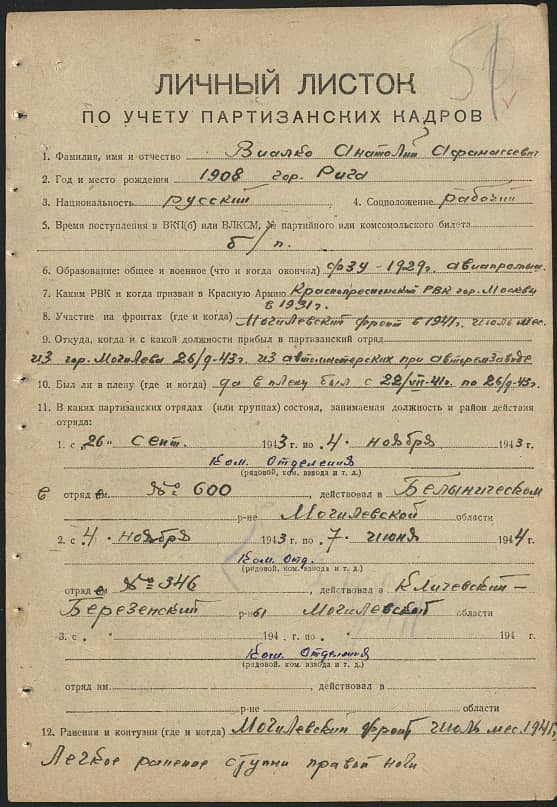 51
ЛИЧНЫЙ ЛИСТОК
ПО УЧЕТУ ПАРТИЗАНСКИХ КАДРОВ
1. Фамилия, имя и отчество Виалко Анатолий Афанасьевич
2. Год и место рождения 1908 гор. Рига
3. Национальность русский 4. Соцположение рабочий
5. Время поступления в ВКП(б) или ВЛКСМ, № партийного или комсомольского билета
б/п.
6. Образование: общее и военное (что и когда окончил) ФЗУ - 1929г. авиапромыш.
7. Каким РВК и когда призван в Красную Армию Краснопресненский РВК гор. Москвы
в 1931г.
8. Участие на фронтах (где и когда) Могилевский фронт в 1941г. июль мес.
9. Откуда, когда и с какой должности прибыл в партизанский отряд
из гор. Могилева 26/9-43г. из автомастерских при авторемзаводе
10. Был ли в плену (где и когда) да в плену был с 22/VII-41г. по 26/9-43г.
11. В каких партизанских отрядах (или группах) состоял, занимаемая должность и район действия
отряда:
1. с "26" сент. 1943 г. по "4" ноября 1943 г.
Ком. Отделения
(рядовой, ком. взвода и т. д.)
в отряде № 600, действовал в Белыническом
р-не Могилевской области
2. с "4" ноября 1943 г. по "7" июня 1944 г.
Ком. Отд.
(рядовой, ком. взвода и т. д.)
отряде № 346, действовал в Кличевский -
Березенский р-ны Могилевской области
3. с " " 194 г. по " " 194 г.
Ком. Отделения
(рядовой, ком. взвода и т. д.)
отряд им. , действовал в
р-не области
12. Ранения и контузии (где и когда) Могилевский фронт июль мес. 1941г.
Легкое ранение ступни правой ноги